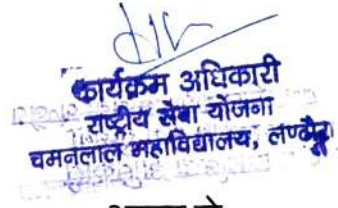 कार्यक्रम अधिकारी
राष्ट्रीय सेवा योजना
चमनलाल महाविद्यालय, लण्ढौरा